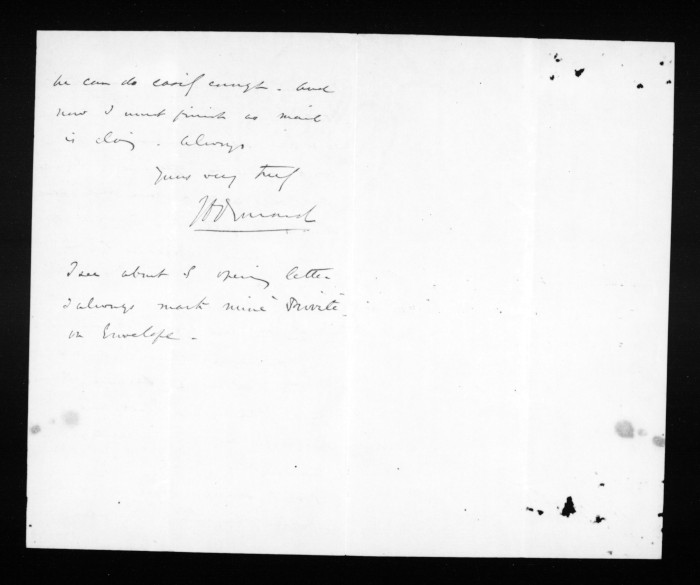 he can do easily enough - and
now I must finish as mail
is closing - Always
Yours very truly
JDOrmond
I see about opening letter
I always mark mine Private
on Envelope -